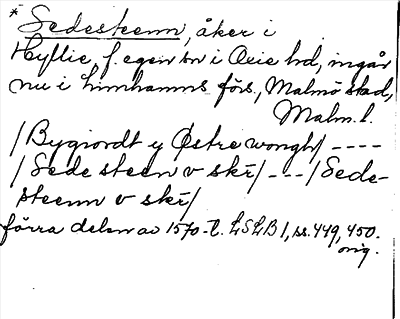 * Sedesteenn, åker i
Hyllie, f. egen sn i Oxie hd, ingår
nu i Limhamns förs., Malmö stad,
Malm. l.
/Bygiordt y Østre wongh/ ----
/Sede steen v skr/ --- /Sede-
steenn v skr/
förra delen av 1570-t. LSLB 1, ss. 449, 450.
orig.